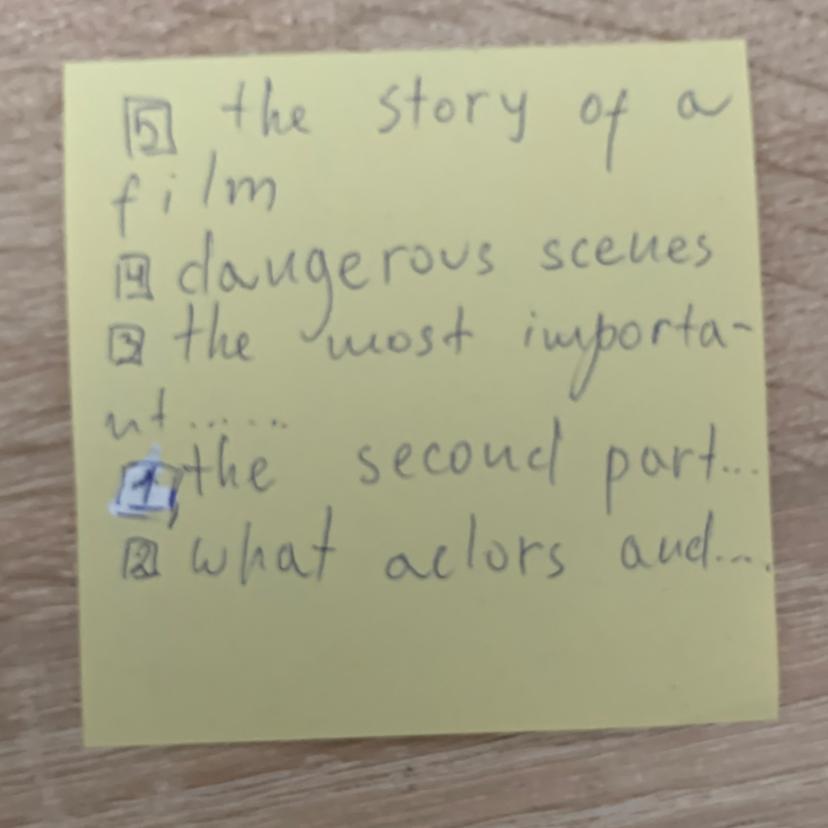 5 the story of a
film
4 dangerous scenes
3 the most importa-
nt.....
1, the second part...
2 what actors and....